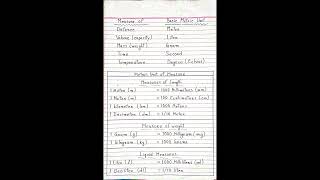 Measure of Basic Metric Unit
Distance Meter
Volume (capacity) Liter
Mass (weight) Gram
Time Second
Temperature Degree (Celsius)
Metric Unit of Measure
Measures of Length
1 Meter (m) = 1000 Millimeters (mm)
1 Meter (m) = 100 Centimeters (cm)
1 Kilometer (km) = 1000 Meters
1 Decimeter (dm) = 1/10 Meter
Measure of weight
1 Gram (g) = 1000 Milligram (mg)
1 Kilogram (kg) = 1000 Grams
Liquid Measures
1 Liter (l) = 1000 Milliliters (ml)
1 Deciliter (dl) = 1/10 Liter